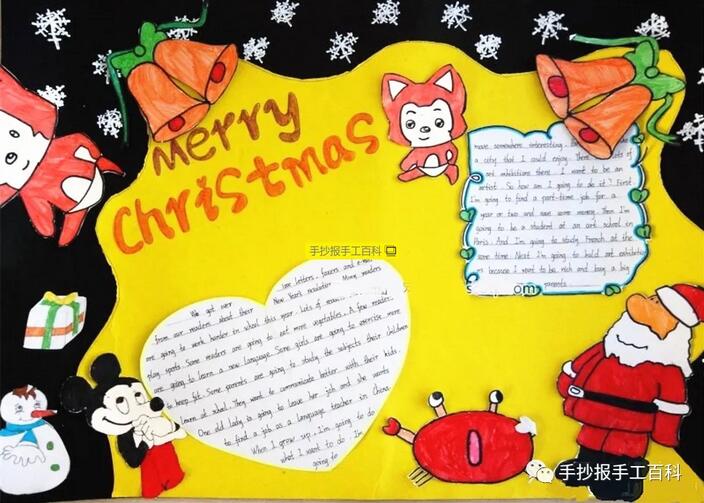 Merry
Christmas
手抄报手工百科
move somewhere interesting.
a city that I could enjoy. There
art exhibitions there I want to be an
artist. So how am I going to do it? First
I'm going to find a part-time job for a
year or two and save some money. Then I'm
going to be a student at an art school in
Paris. And I'm going to study French at the
same time. Next I'm going to hold art exhibitions
because I want to be rich and buy a big
parents
om
love letters, faxes and e-mai
We got over New Years resolution Many readers
from our readers about their
are going to work harder in school this year. Lots of
play sports. Some readers are going to eat more vegetables. A few reader
are going to learn a new language. Some girls are going to exercise more
to keep fit. Some parents are going to study the subjects their children
learn at school. They want to communicate better with their kids.
One old lady is going to leave her job and she wants
to find a job as a language teacher in China.
When I grow up, I'm going to do
what I want to do. I'm
going to
手抄报手工百科